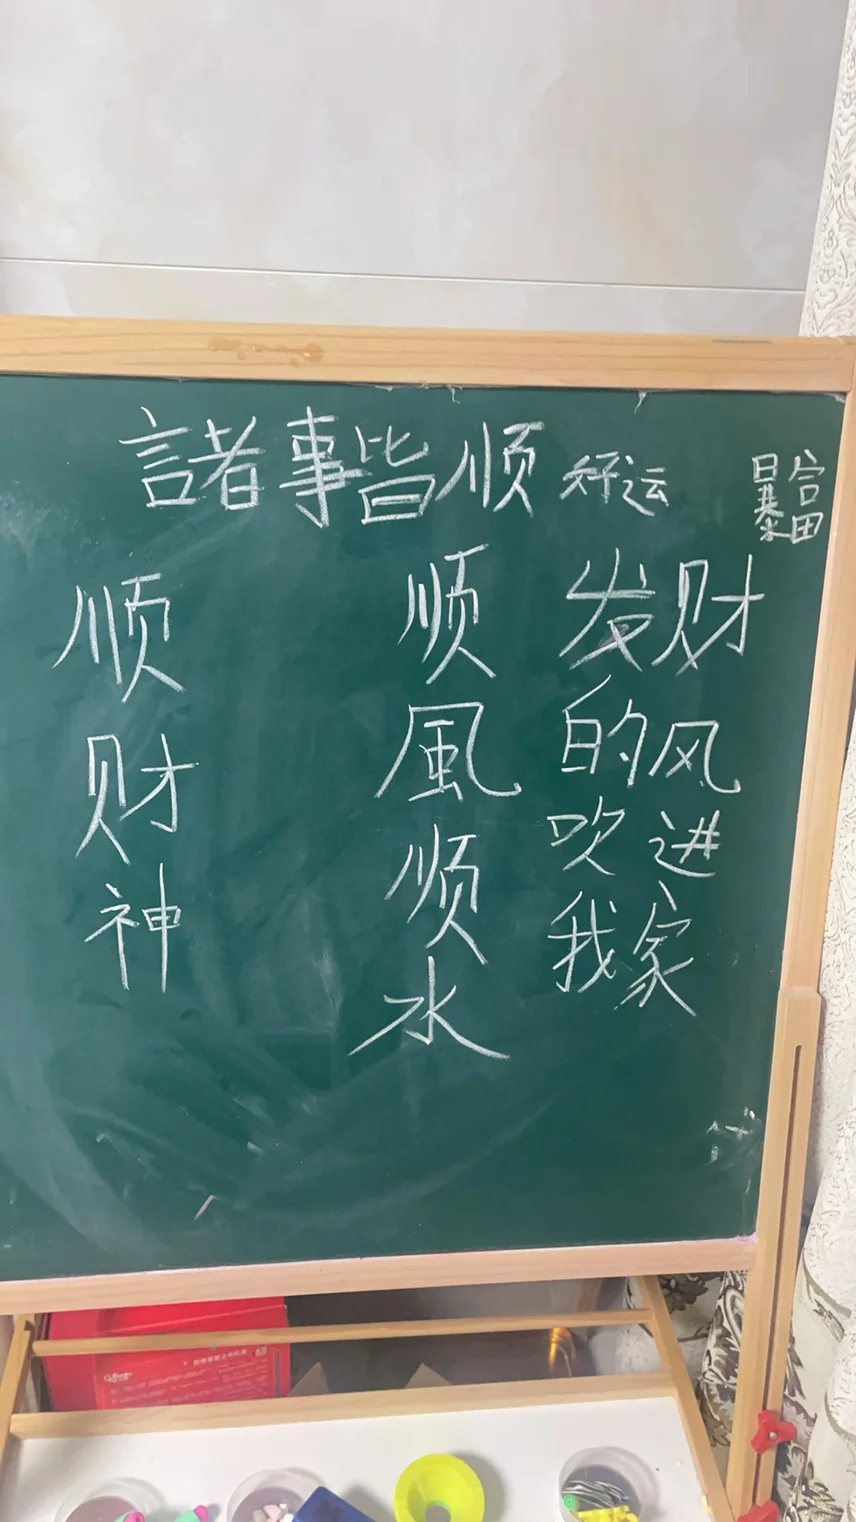 諸事皆顺 好运
暴富
顺财神
顺風顺水
发财
的风
吹进
我家